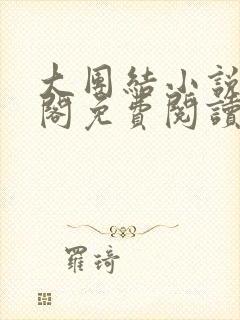 大團結小說
閣免費閱讀
羅琦